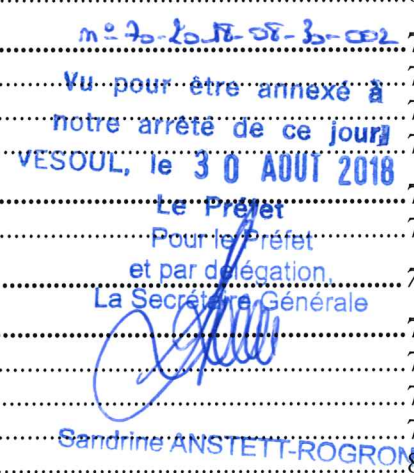 n° 70-2018-08-30-002
Vu pour être annexé à
notre arrêté de ce jour
VESOUL, le 3 0 AOUT 2018
Le Préfet
Pour le Préfet
et par délégation,
La Secrétaire Générale
Sandrine ANSTETT-ROGRON